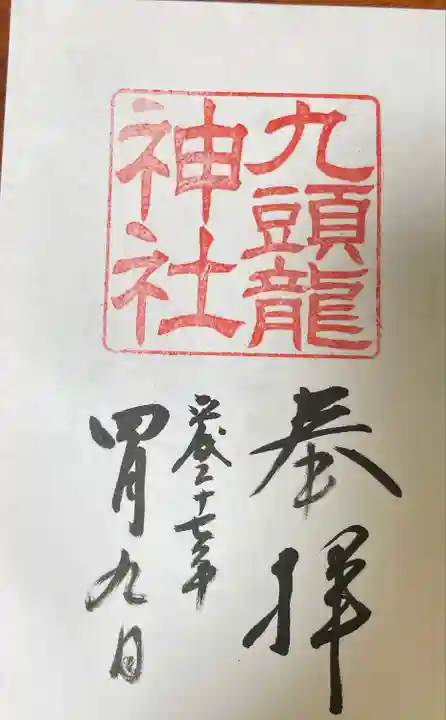 九頭龍
神社
奉拝
平成二十七年
四月九日